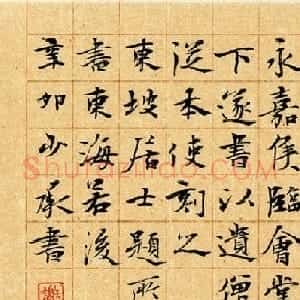 永嘉侯臨會堂
下遂書以遺僧
從本使刻之
東坡居士題所
書東海若後
如少承書